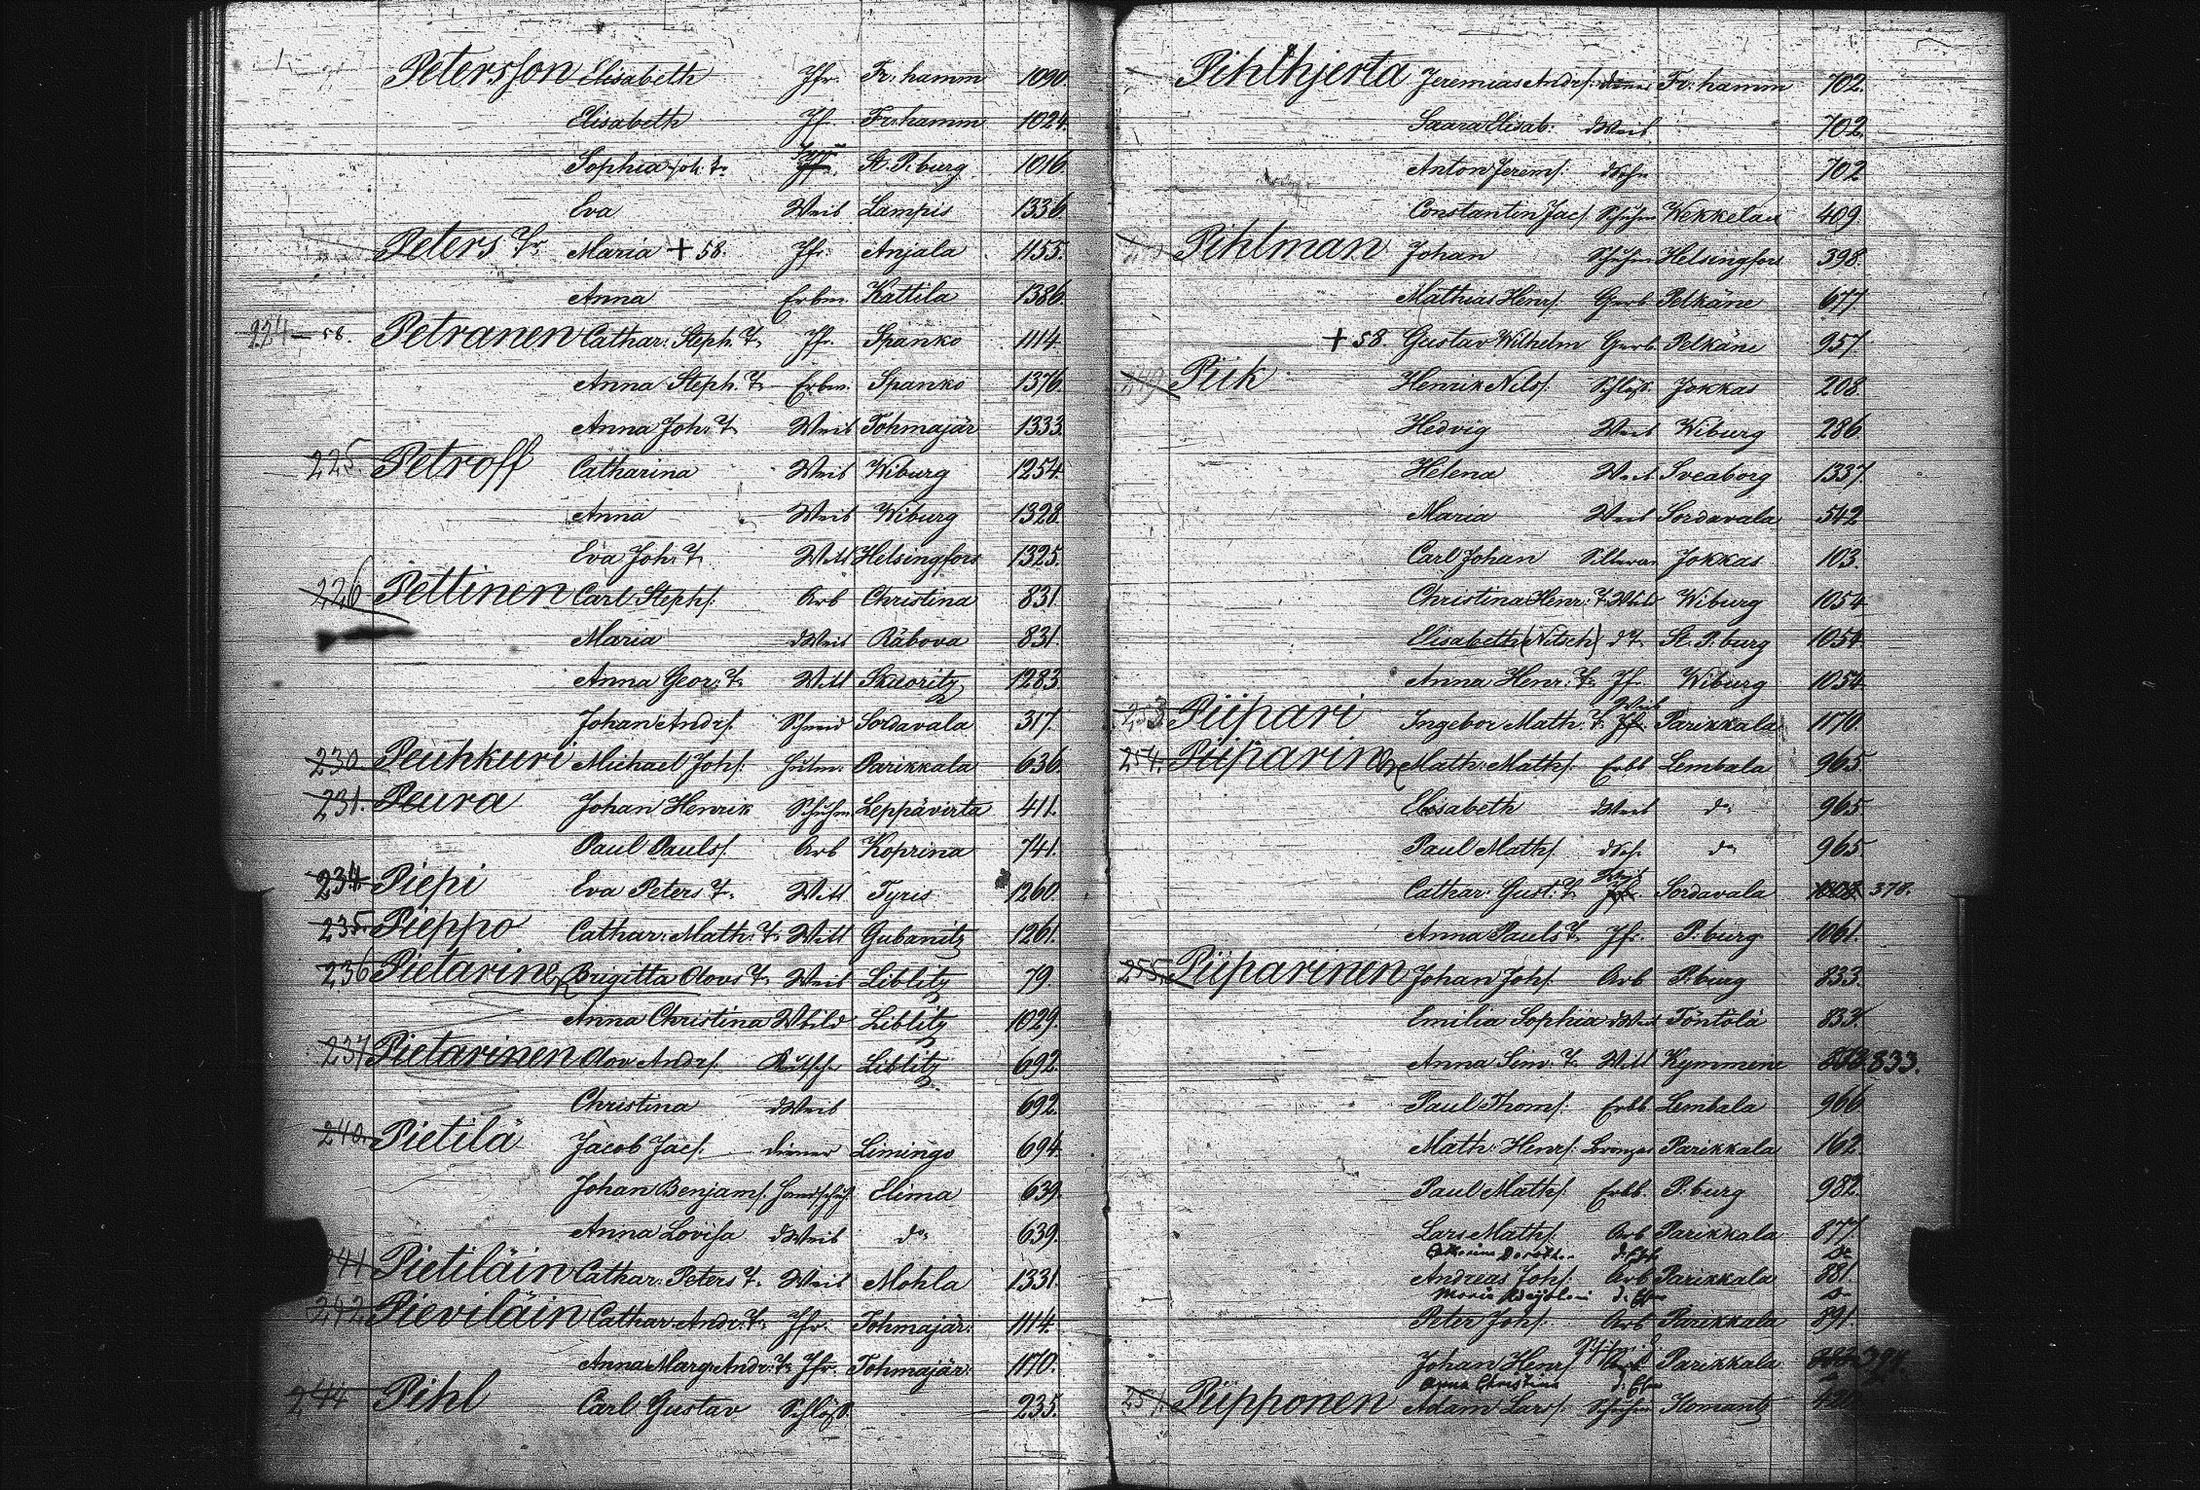 Petersson Elisabeth Jfr. Fr: hamm 1090.
Elisabeth Jf. Fr: hamm 1024.
Sophia Joh. Tr. St. P. burg 1016.
Eva Weib Lampis 1336.
Peters Tr Maria + 58. Jfr: Anjala 1155.
Anna Erbm. Kattila 1386.
224 58. Petranen Cathar: Steph. Tr. Jf. Spanko 1114.
Anna Steph. Tr. Erbm. Spanko 1376.
Anna Joh: Tr Weib Tohmajär 1333.
225. Petroff Catharina Weib Wiburg 1254.
Anna Weib Wiburg 1328.
Eva Joh: Tr. Witt Helsingfors 1325.
226 Pettinen Carl Stephs. Arb Christina 831.
Maria dWeib Räbova 831.
Anna Geor: Tr. Witt Skuoritz 1283.
Johan Andrs. Schmid Sordavala 317.
230. Peuhkuri Michael Johs. Hutm. Parikkala 636.
231. Peura Johan Henrik Schuhm Leppävirta 411.
Paul Pauls. Arb Koprina 741.
234. Piepi Eva Peters Tr. Witt Tyris 1260.
235. Pieppo Cathar: Math: Tr. Witt Gubanitz 1261.
236 Pietarine Brigitta Olovs Tr. Weib Liblitz 79.
Anna Christina Wbild Liblitz 1029.
237 Pietarinen Olov Andrs. Kutsche Liblitz 692.
Christina dWeib 692.
240. Pietilä Jacob Jacs. diener Limingo 694.
Johan Benjams. Handschuh Elima 639.
Anna Lovisa dWeib do 639.
241 Pietiläin Cathar: Peters Tr. Weib Mohla 1331.
242. Pieviläin Cathar. Andr: Tr. Jfr. Tohmajär. 1114.
Anna Marg: Andr: Tr. Jfr. Tohmajär: 1170.
244 Pihl Carl Gustav Schlöss. 235.
Pihlhjerta Jeremias Andrs. diener Fr: hamm 702.
Saara Elisab: dWeib 702.
Anton Jerems. dSohn 702
Constantin Jacs. Schuhm Wekkelax 409.
Pihlman Johan Schuhm Helsingfors 398.
Mathias Henrs. Gerb Pelkäne 677.
+ 58. Gustav Wilhelm Gerb. Pelkäne 957.
249. Piik Henrik Nils. Schlöss. Jokkas 208.
Hedvig Weib Wiburg 286.
Helena Weib Sveaborg 1337.
Maria Weib Sordavala 542
Carl Johan Silberar Jokkas 103.
Christina Henr: Tr. Wbild Wiburg 1054
Elisabeth (Nitsch) dTr St. P. burg 1054.
Anna Henr: Tr. Jf. Wiburg 1054
Weib
253 Piipari Ingebor Math: Tr. Jfr. Parikkala 1170.
254. Piiparinen Math: Maths. Erbb Lembala 965.
Elisabeth dWeib do 965.
Paul Maths. dSoh. do 965.
Cathar: Gust: Tr. Sordavala 378.
Anna Pauls Tr. Jfr. P. burg 1061.
255. Piiparinen Johan Johs. Arb P. burg 833.
Emilia Sophia dWeib Töntölä 833.
Anna Sim: Tr. Witt Kymmene 833.
Paul Thoms: Erbb Lembala 966
Math: Henrs: Bronzar Parikkala 162.
Paul Maths. Erbb. P. burg 982.
Lars Maths. Arb Parikkala 877.
Catharina Doroth d. Ehfr do
Andreas Johs: Arb Parikkala 881.
Maria d. Efr do
Peter Johs. Arb Parikkala 891.
Johan Henrs. Arb Parikkala
Anna Christina d. Efr
257. Piipponen Adam Lars. Schuhm Ilomantz